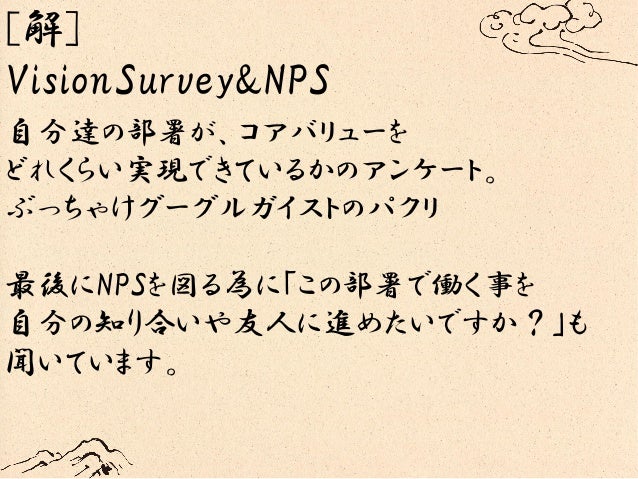 [解]
VisionSurvey&NPS
自分達の部署が、コアバリューを
どれくらい実現できているかのアンケート。
ぶっちゃけグーグルガイストのパクリ
最後にNPSを図る為に「この部署で働く事を
自分の知り合いや友人に進めたいですか？」も
聞いています。